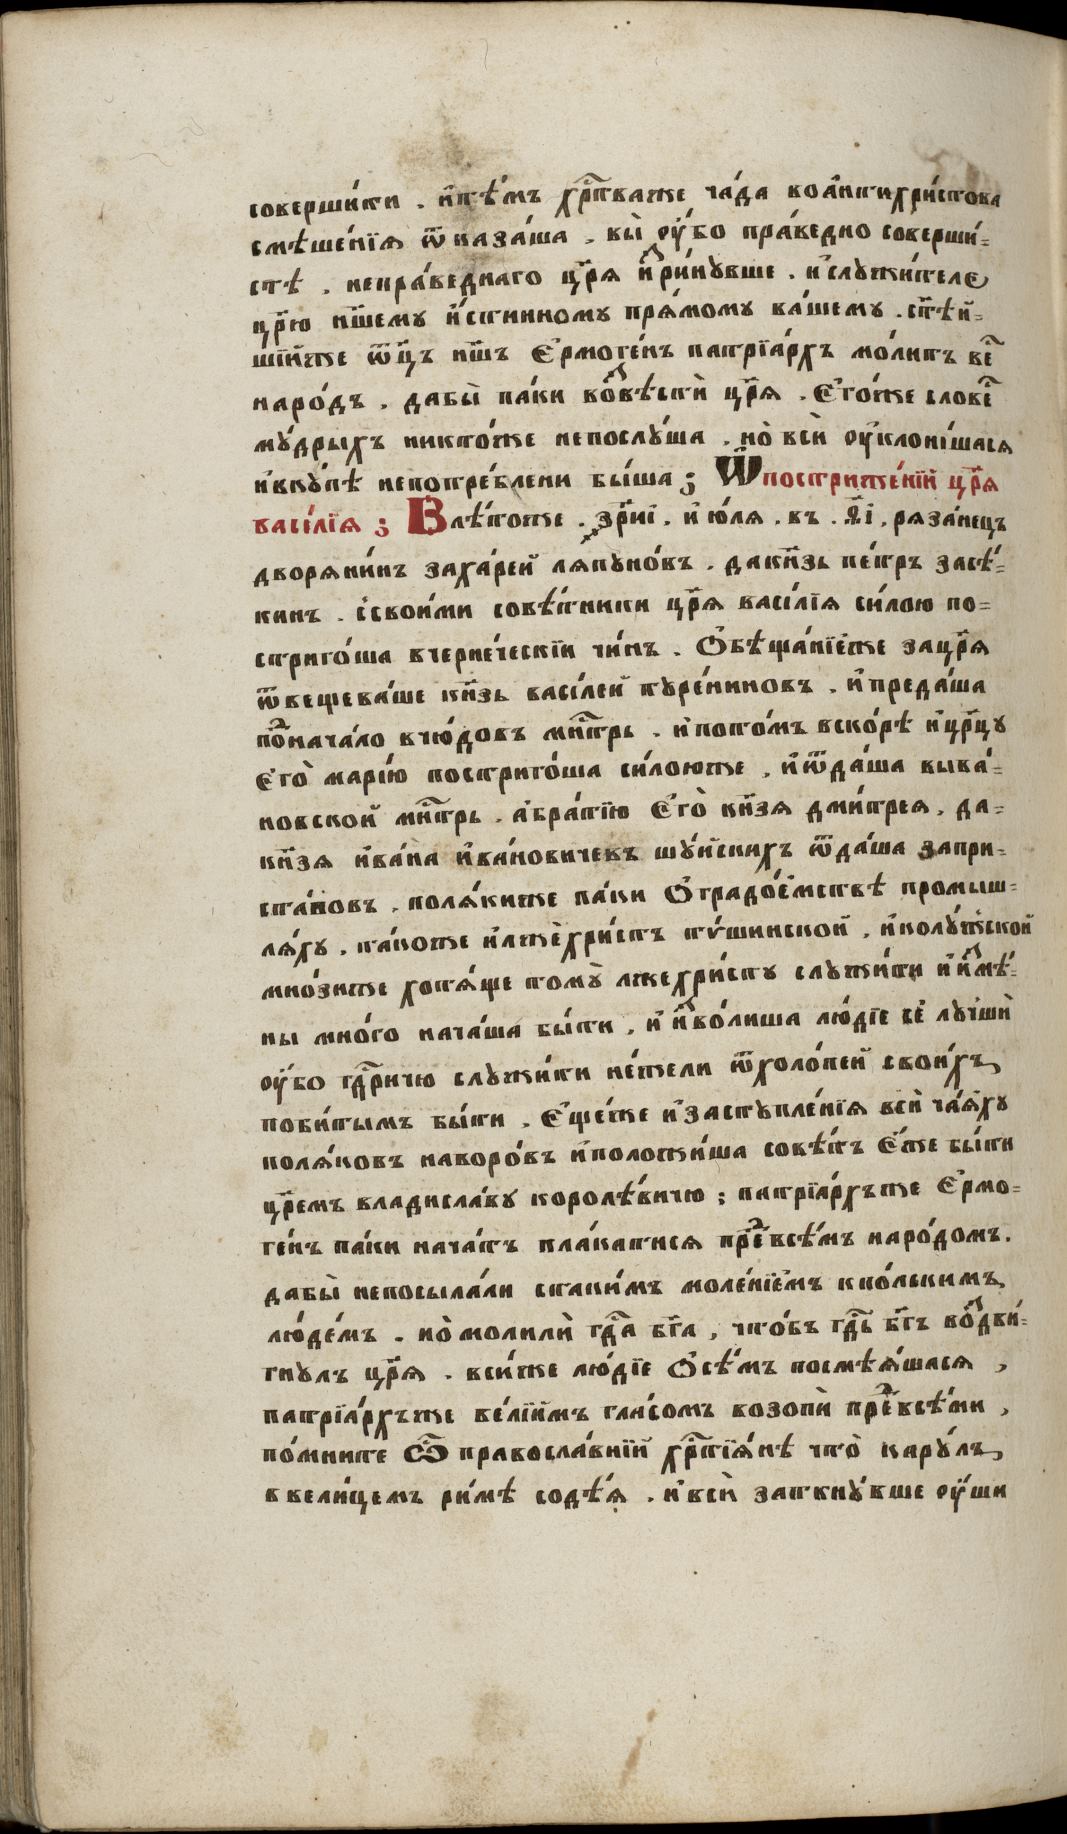 соверши́ти . и҆тѣ́мъ хрⷭ҇тва́же ча́да воа҆нтихри́стова
смѣше́нїѧ ѿказа́ша . вы̀ оу҆́бо пра́ведно соверши́-
стѣ . непра́веднаго цр҃ѧ и҆зри́нувше . и҆слꙋжи́теле
цр҃ю нш҃емꙋ и҆́стинномꙋ прѧ́момꙋ ва́шемꙋ . ст҃ѣ́й-
шїйже ѿц҃ъ нш҃ъ Є҆рмоге́нъ патрїа́рхъ мо́литъ ве́сⷭ
наро́дъ . дабы̀ па́ки возве́стѝ цр҃ѧ . Є҆го́же слове́сⷭ
мꙋ́дрыхъ никто́же непослꙋ́ша . но̀ всѝ оу҆клони́шасѧ
и҆вкꙋ́пѣ непотре́блени бы́ша ; Ѽ постриже́нїй цр҃ѧ
васи́лїѧ ; Влѣ́тоже . зр҃иі . и҆ ю҆́лѧ . въ . ѳ҃і . рѧза́нецъ
дворѧни́нъ заха́рей лѧпꙋно́въ . дакн҃зь пе́тръ засѣ́-
кин . ссвои́ми совѣ́тники цр҃ѧ васи́лїѧ си́лою по-
стриго́ша вчерне́ческїи чи́нъ . Ѻ҆бѣща́нїе́же зацр҃ѧ
ѿвещева́ше кн҃зь васи́лей тꙋре́нинов . и҆ преда́ша
по́дⷣнача́ло вчю́дов мн҃трь . и҆пото́мъ вско́рѣ и҆цр҃цꙋ
є҆го̀ марі́ю постриго́ша си́лоюже , и҆ѿда́ша выва́-
новской мн҃трь . а҆бра́тїю Є҆го̀ кн҃зѧ дми́треѧ . да-
кн҃зѧ и҆ва́на и҆ва́новичевъ шꙋ́йскихъ ѿда́ша запри-
ста́вовъ . полѧ́киже па́ки Ѻ҆градое́мствѣ промыш-
лѧ́хꙋ . та́коже и҆лжѐхри́стъ тꙋ́шинской , и҆колꙋ́жской
мно́зиже хотѧ́ще томꙋ̀ лжехри́стꙋ слꙋжи́ти и҆ и҆змѣ́-
ны мно́го нача́ша бы́ти . и҆ и҆зво́лиша лю́дїе се́ лꙋ́чши
оу҆́бо гдⷭ҇ричю слꙋжи́ти не́жели ѿхоло́пей свои́хъ
поби́тымъ бы́ти . Є҆ще́же и҆застꙋпле́нїѧ всѝ ча́ѧхꙋ
полѧ́ковъ наворо́въ и҆положи́ша совѣ́тъ Є҆́же бы́ти
цр҃емъ владисла́вꙋ королѣ́вичю ; патрїа́рхъже Є҆рмо-
ге́нъ па́ки нача́тъ пла́катисѧ пре́дⷣвсѣ́мъ наро́домъ .
дабы̀ непосыла́ли стаки́мъ моле́нїемъ кпо́льскимъ
лю́демъ . но̀ моли́ли гдⷭ҇а бг҃а , что́бъ гдⷭ҇ь бг҃ъ воздви́-
гнꙋлъ цр҃ѧ . всѝже лю́дїе Ѻ҆се́мъ посмѣѧ́шасѧ ,
патрїа́рхъже ве́лїимъ гла́сомъ возопѝ пре́дⷣвсѣ́ми ,
по́мните Ѽ правосла́внїй хрⷭ҇тїѧ́нѣ что̀ карꙋ́лъ
ввели́цемъ ри́мѣ содѣ́ѧ . и҆всѝ заткнꙋ́вше оу҆́ши